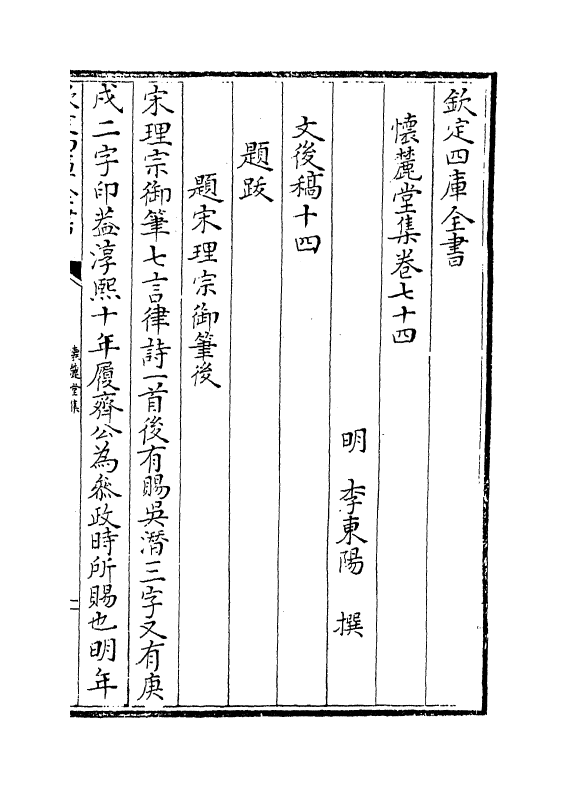 欽定四庫全書
懷麓堂集卷七十四
明 李東陽 撰
文後稿十四
題跋
題宋理宗御筆後
宋理宗御筆七言律詩一首後有賜吳潛三字又有庚
戌二字印葢淳熙十年履齊公為叅政時所賜也明年
欽定四庫全書
懷麓堂集